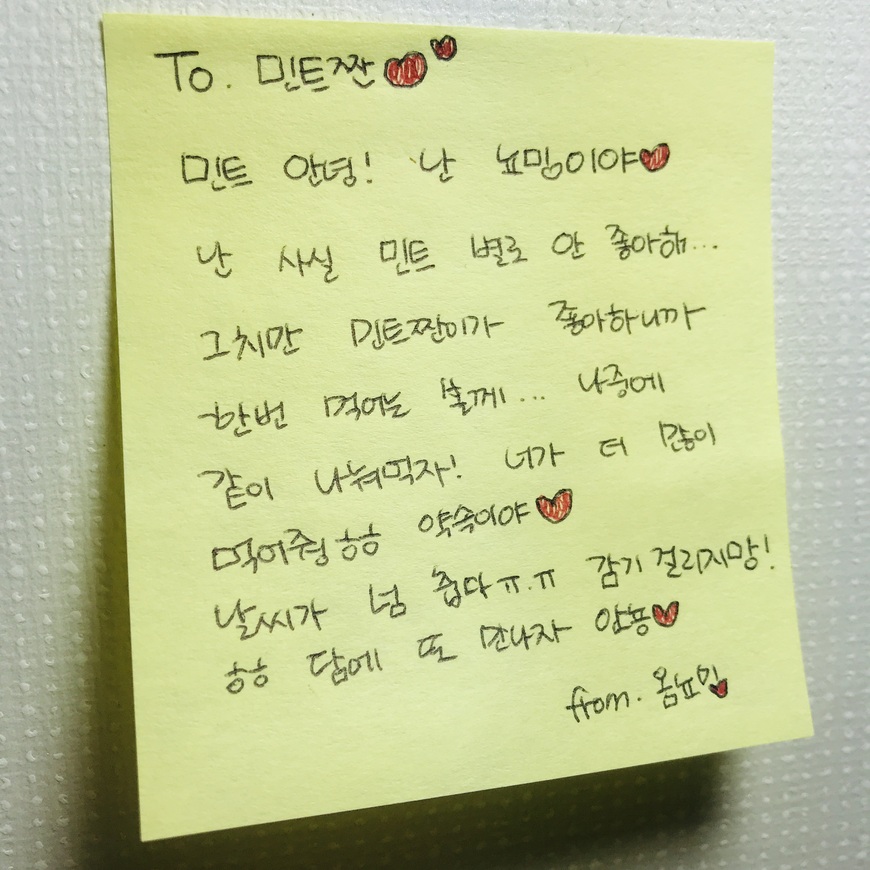 To. 민트짠❤❤
민트 안녕! 난 뇨밍이야❤
난 사실 민트 별로 안 좋아해...
그치만 민트짠이가 좋아하니까
한번 먹어는 볼께... 나중에
같이 나눠먹자! 너가 더 많이
먹어줭 ㅎㅎ 약속이야❤
날씨가 넘 춥다ㅠ.ㅠ 감기 걸리지망!
ㅎㅎ 담에 또 만나자 안뇽❤
from. 옴뇨밍❤